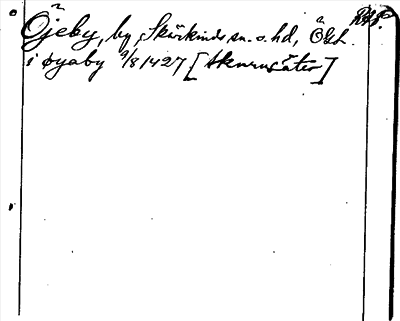 Öjeby, by, Skärkinds sn. o. hd, Ögl.
i øyaby 9/8 1427 [Skurusäter]